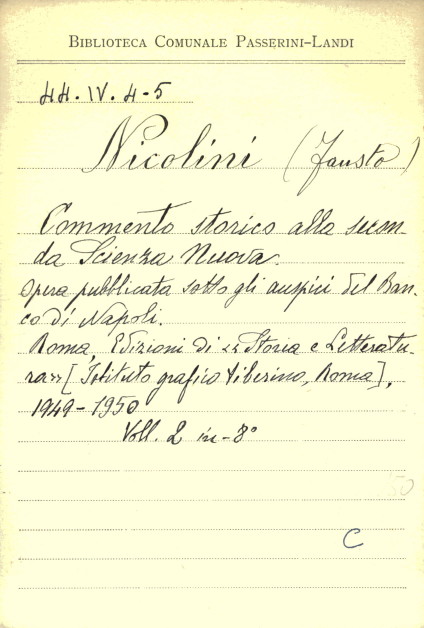 BIBLIOTECA COMUNALE PASSERINI-LANDI
44.IV.4-5
Nicolini (Fausto)
Commento storico alla secon-
da Scienza Nuova.
Opera pubblicata sotto gli auspici del Ban-
co di Napoli.
Roma, Edizioni di «Storia e Letteratu-
ra» [Istituto grafico Tiberino, Roma],
1949-1950
Voll. 2 in-8°
50
C